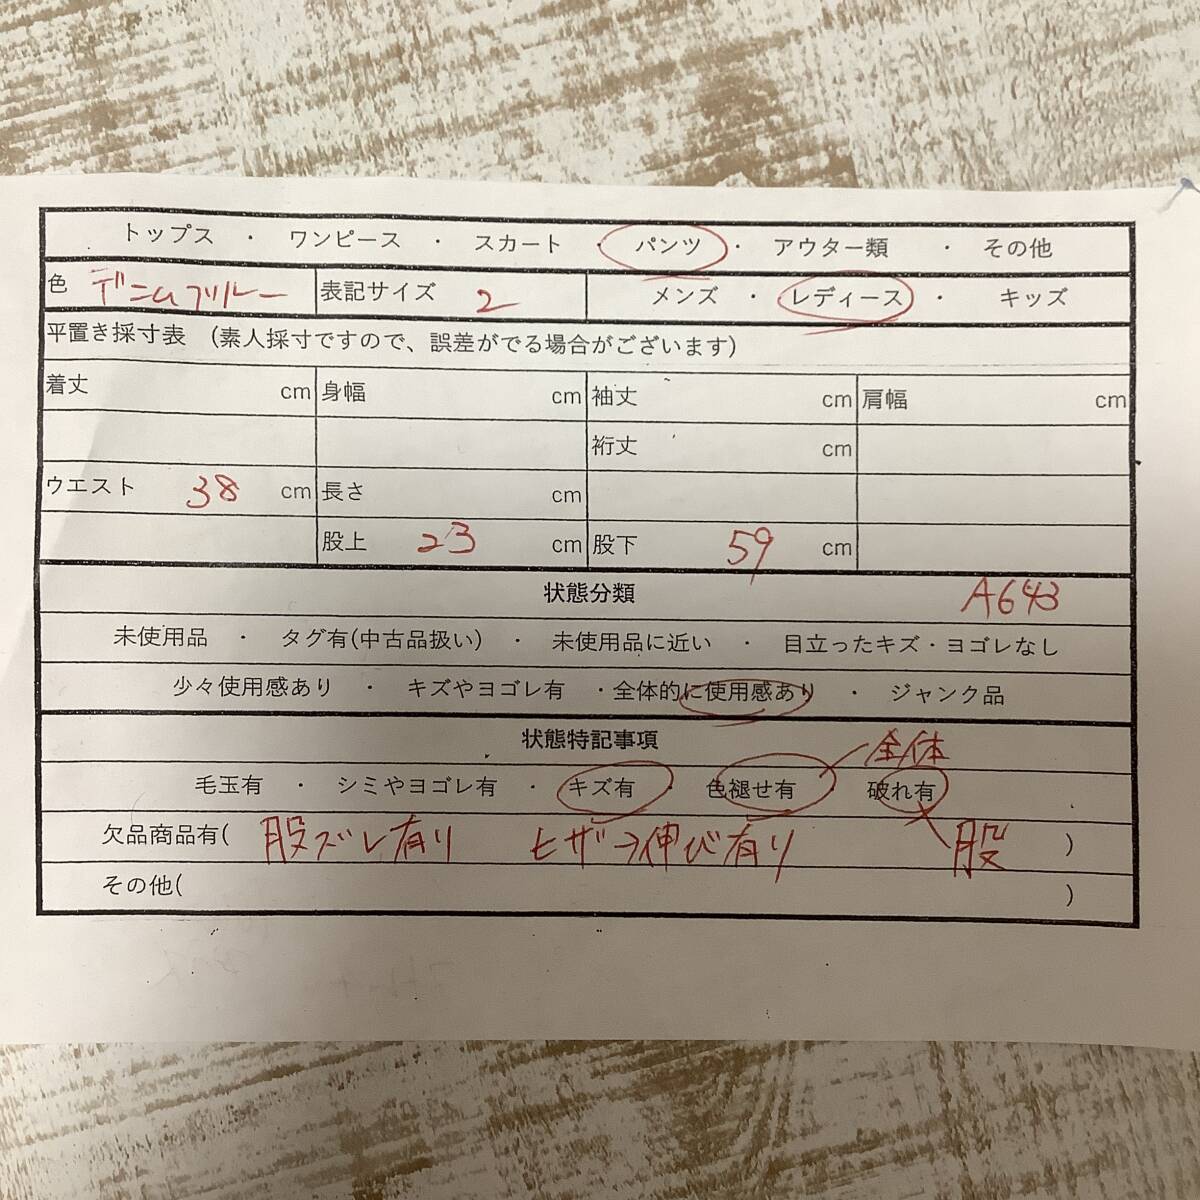 トップス ・ ワンピース ・ スカート ・ パンツ ・ アウター類 ・ その他
色 デニムブルー 表記サイズ 2 メンズ ・ レディース ・ キッズ
平置き採寸表 (素人採寸ですので、誤差がでる場合がございます)
着丈 cm 身幅 cm 袖丈 cm 肩幅 cm
裄丈 cm
ウエスト 38 cm 長さ cm
股上 23 cm 股下 59 cm
状態分類 A643
未使用品 ・ タグ有(中古品扱い) ・ 未使用品に近い ・ 目立ったキズ・ヨゴレなし
少々使用感あり ・ キズやヨゴレ有 ・全体的に使用感あり ・ ジャンク品
状態特記事項 全体
毛玉有 ・ シミやヨゴレ有 ・ キズ有 ・ 色褪せ有 ・ 破れ有
欠品商品有( 股ズレ有り ヒザ→伸び有り 股 )
その他( )